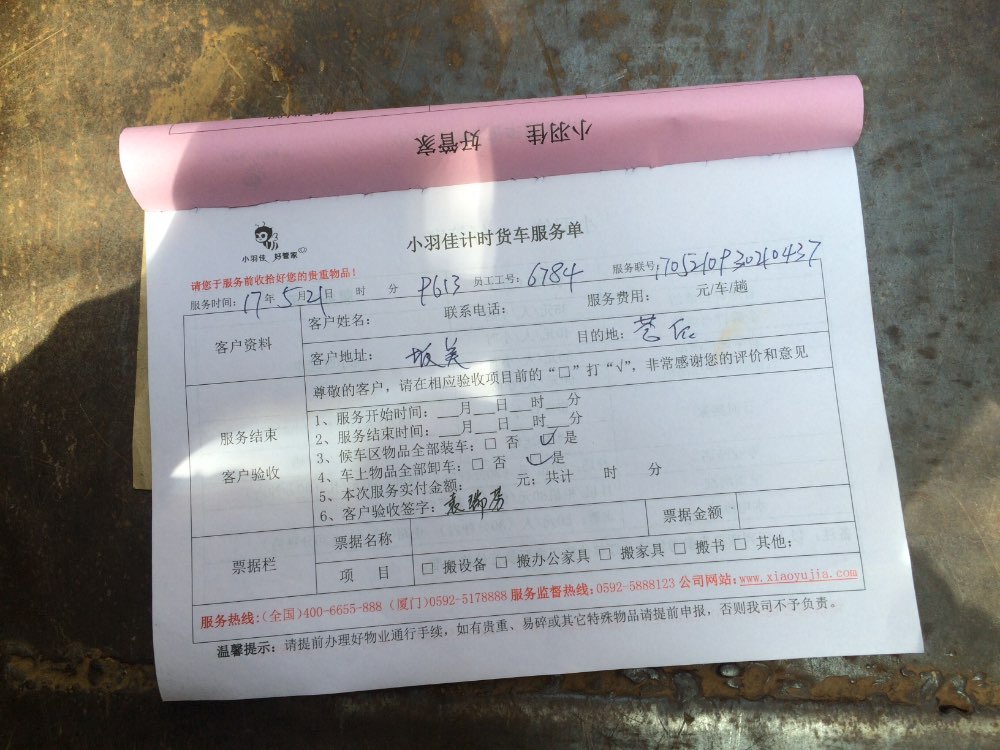 小羽佳 好管家
小羽佳 好管家
小羽佳计时货车服务单
请您于服务前收拾好您的贵重物品！
服务时间：17年5月21日 时 分 P613 员工工号：6784 服务联号：705210930210437
客户资料
客户姓名： 联系电话： 服务费用： 元/车/趟
客户地址： 坂美 目的地：
服务结束
客户验收
尊敬的客户，请在相应验收项目前的“□”打“√”，非常感谢您的评价和意见
1、服务开始时间：___月___日___时___分
2、服务结束时间：___月___日___时___分
3、候车区物品全部装车：□ 否 ☑ 是
4、车上物品全部卸车：□ 否 ☑ 是
5、本次服务实付金额： 元；共计 时 分
6、客户验收签字：袁瑞芳
票据栏
票据名称 票据金额
项 目 □ 搬设备 □ 搬办公家具 □ 搬家具 □ 搬书 □ 其他：
服务热线：(全国)400-6655-888 (厦门)0592-5178888 服务监督热线：0592-5888123 公司网站：www.xiaoyujia.com
温馨提示：请提前办理好物业通行手续，如有贵重、易碎或其它特殊物品请提前申报，否则我司不予负责。